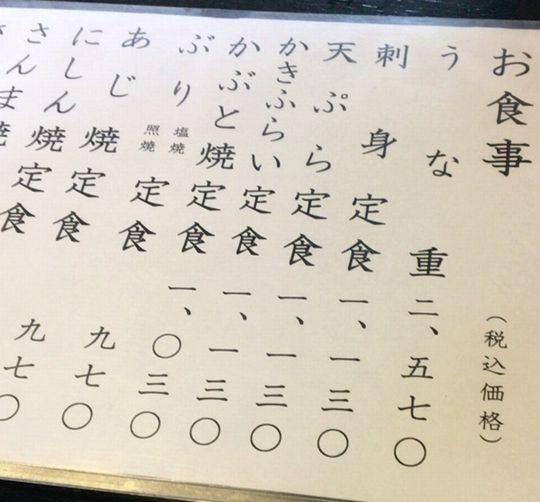 お食事（税込価格）
うな重 二、五七〇
刺身定食 一、一三〇
天ぷら定食 一、一三〇
かきふらい定食 一、一三〇
かぶと焼定食 一、〇三〇
ぶり 塩焼 照焼 定食 九七〇
あじ焼定食 九七〇
にしん焼定食
さんま焼